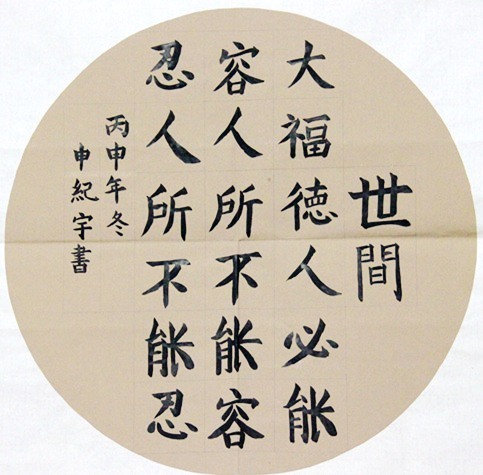 世間
大福德人必能
容人所不能容
忍人所不能忍
丙申年冬
申紀宇書